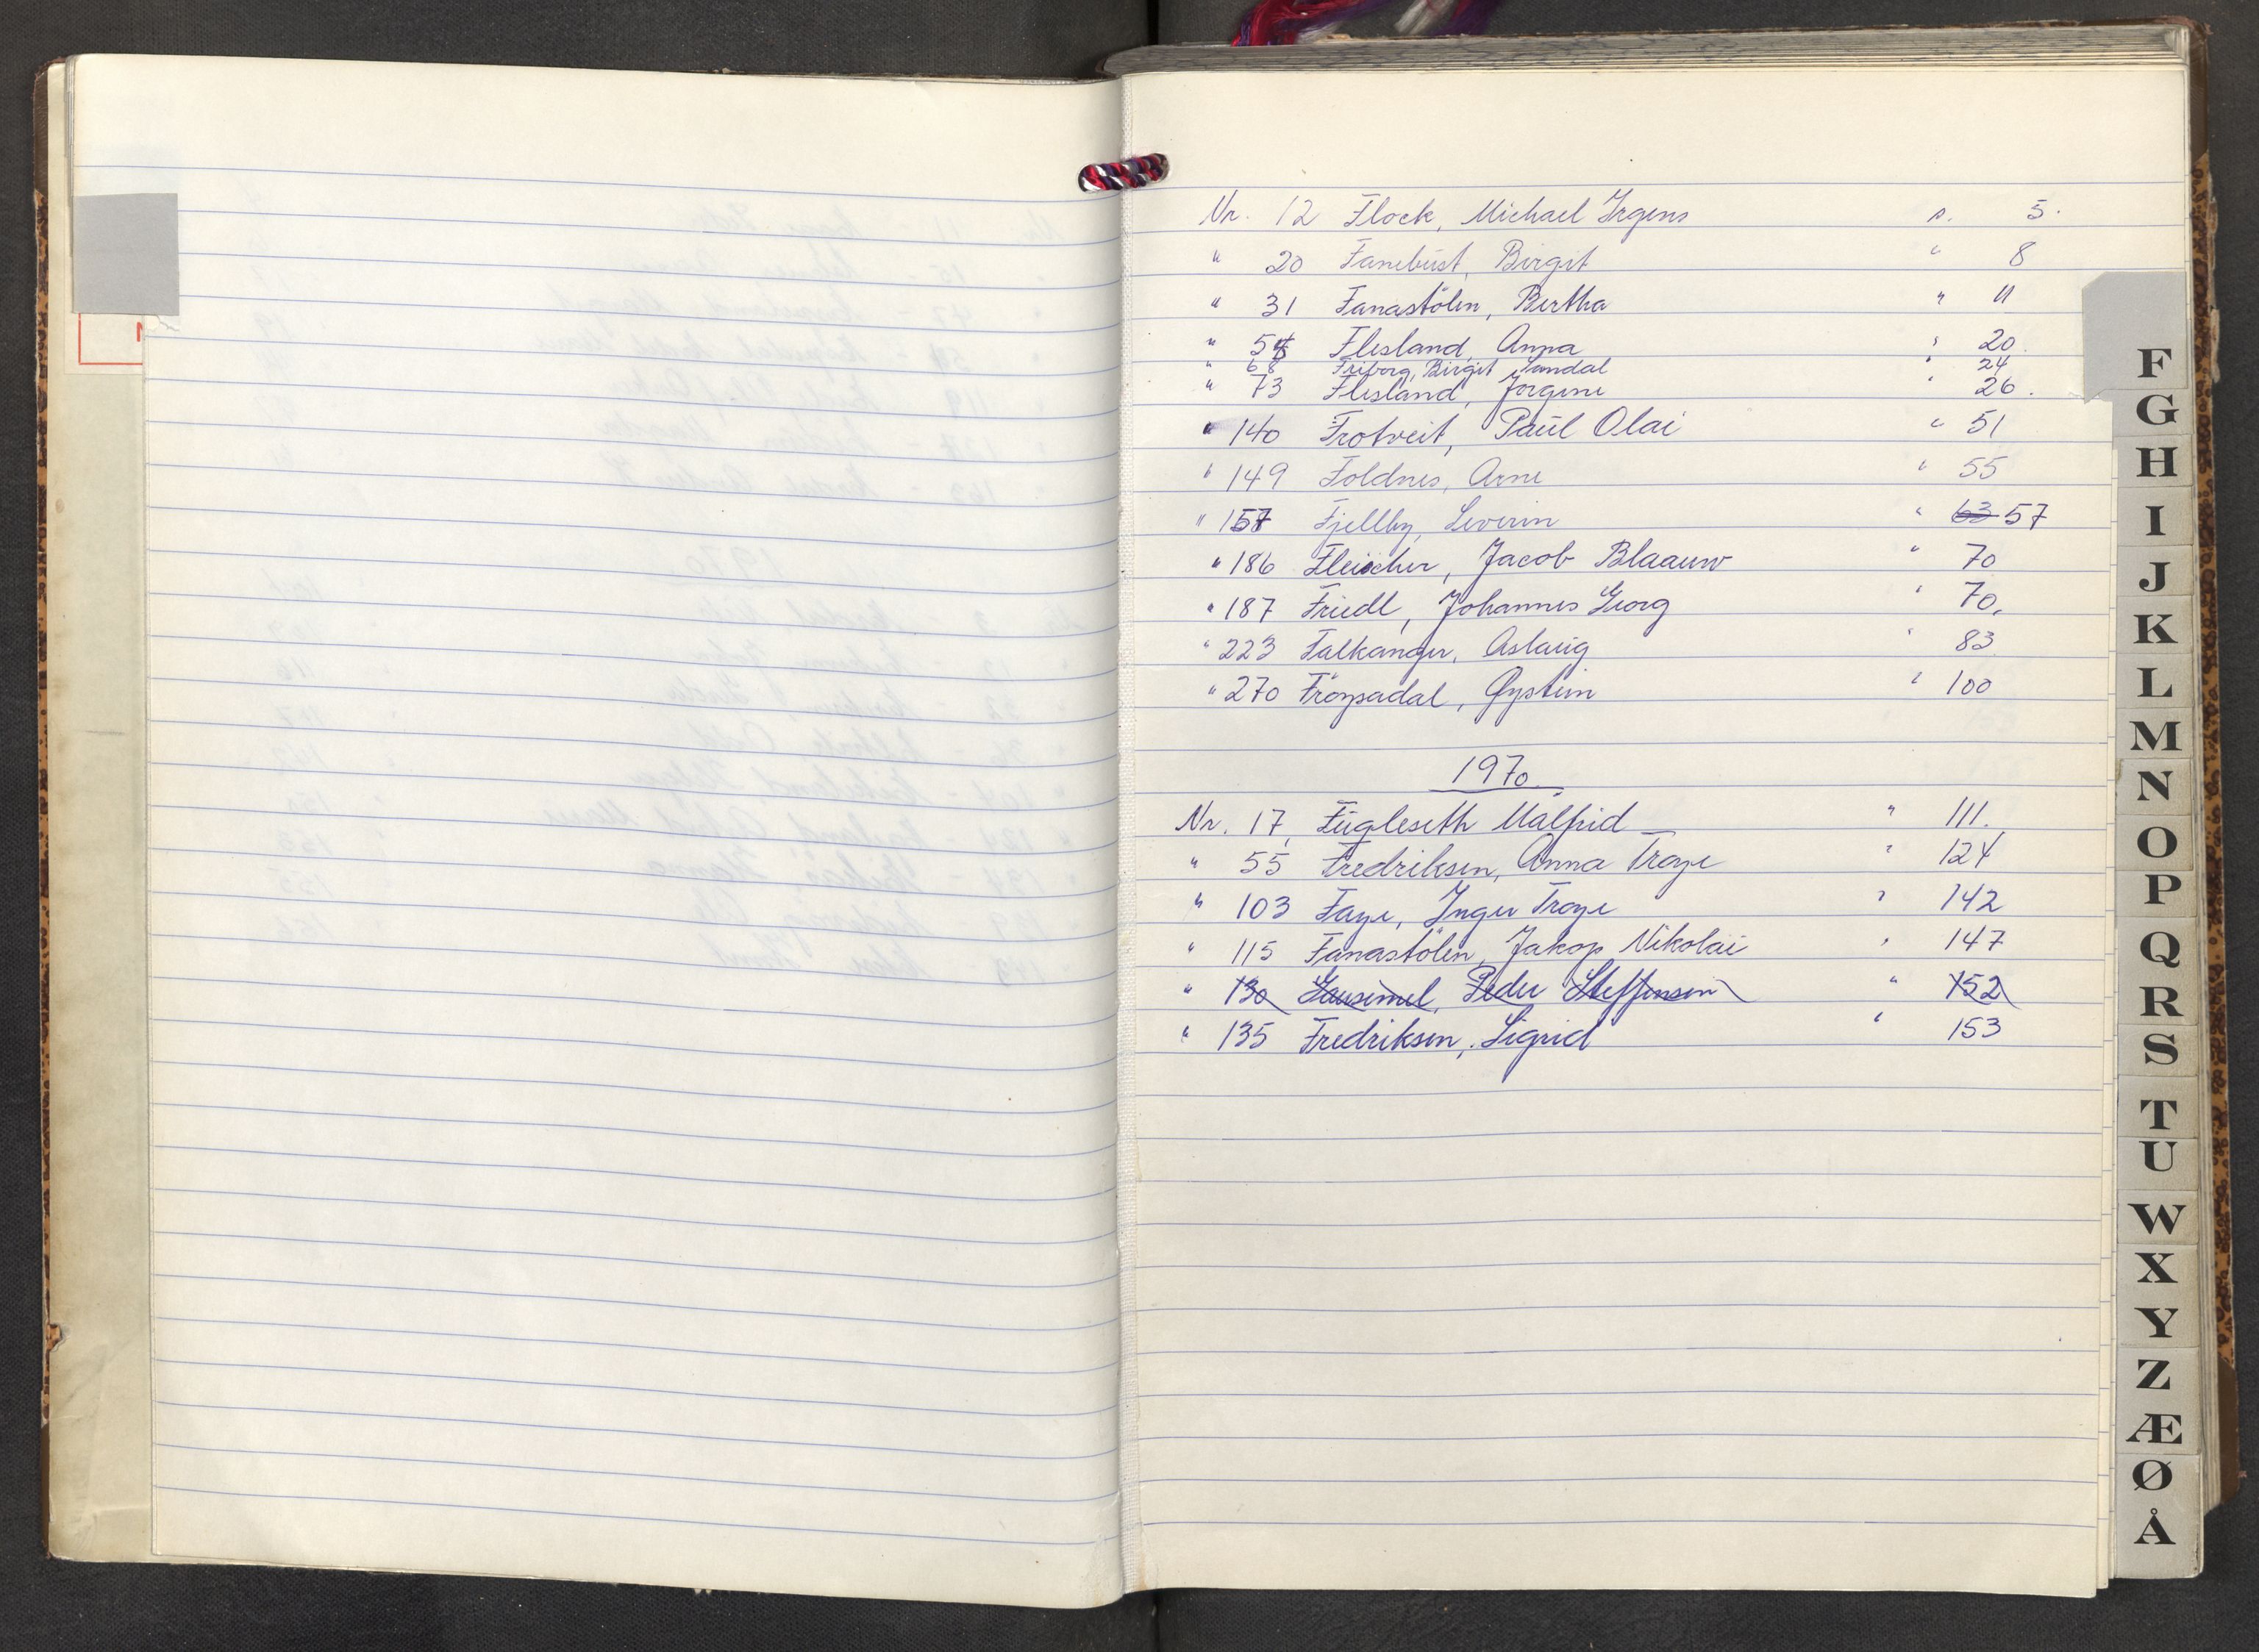 Nr. 12 Flock, Michael Irgens s. 5.
" 20 Fanebust, Birgit " 8
" 31 Fanastölen, Bertha " 11
" 54 Flesland, Anna " 20.
" 68 Friborg, Birgit Sandal " 24
" 73 Flesland, Jörgine " 26.
" 140 Frotveit, Paul Olai " 51
" 149 Foldnes, Arne " 55
" 157 Fjellby, Severin " 63 57
" 186 Fleischer, Jacob Blaauw " 70
" 187 Friedl, Johannes Georg " 70.
" 223 Falkanger, Aslaug " 83
" 270 Fröysadal, Øystein " 100
1970
Nr. 17, Fugleseth Målfrid " 111.
" 55 Fredriksen, Anna Troye " 124
" 103 Faye, Inger Troye " 142
" 115 Fanastölen, Jakop Nikolai " 147
" 130 Peder Steffensen " 152
" 135 Fredriksen, Sigrid " 153
F
G
H
I
J
K
L
M
N
O
P
Q
R
S
T
U
W
X
Y
Z
Æ
Ø
Å